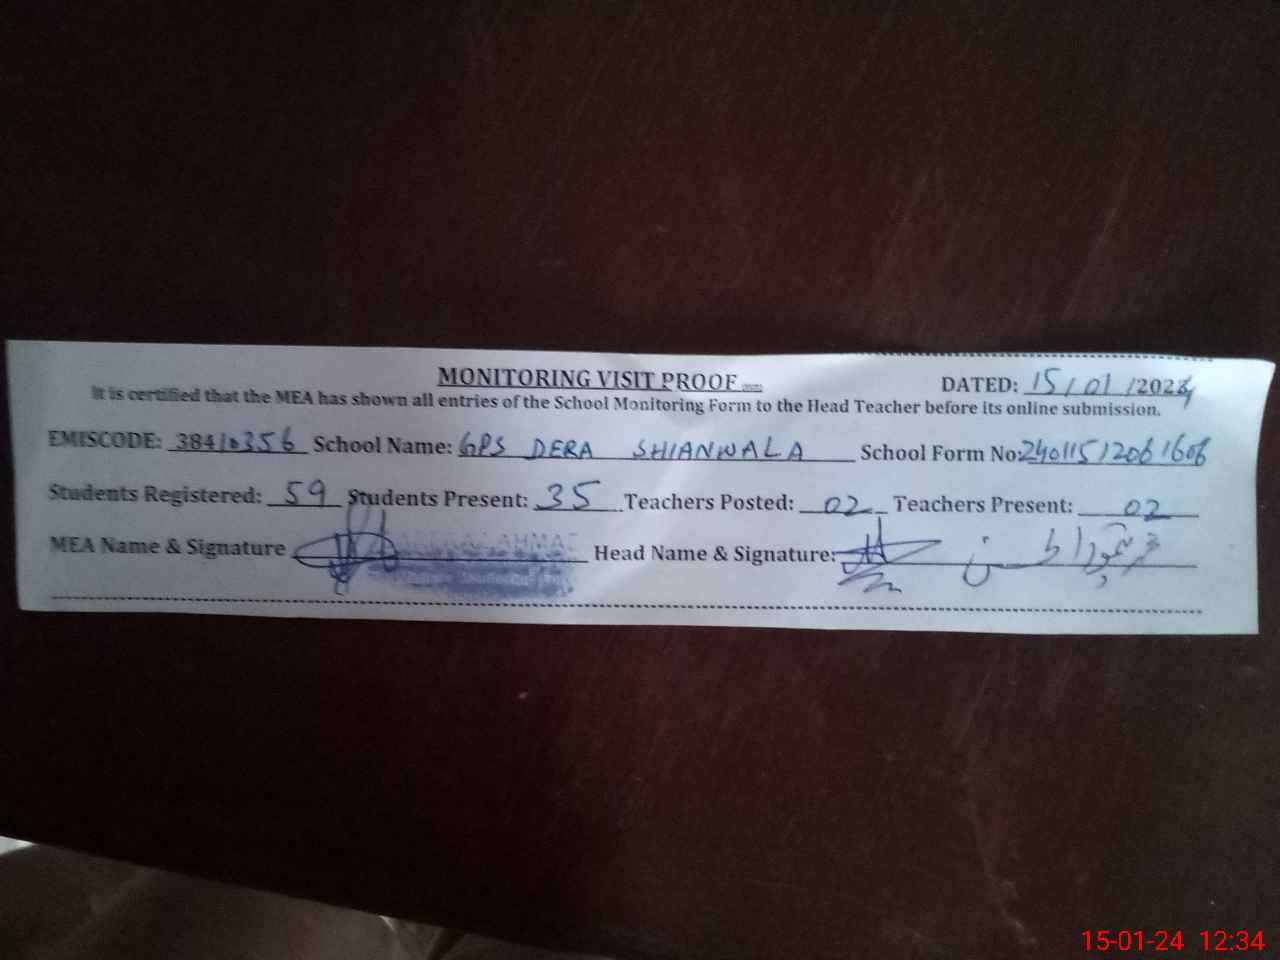 MONITORING VISIT PROOF
DATED: 15/01/2024
It is certified that the MEA has shown all entries of the School Monitoring Form to the Head Teacher before its online submission.
EMISCODE: 38410356 School Name: GPS DERA SHIANWALA School Form No: 24011512061606
Students Registered: 59 Students Present: 35 Teachers Posted: 02 Teachers Present: 02
MEA Name & Signature AHMAD Head Name & Signature:
15-01-24 12:34